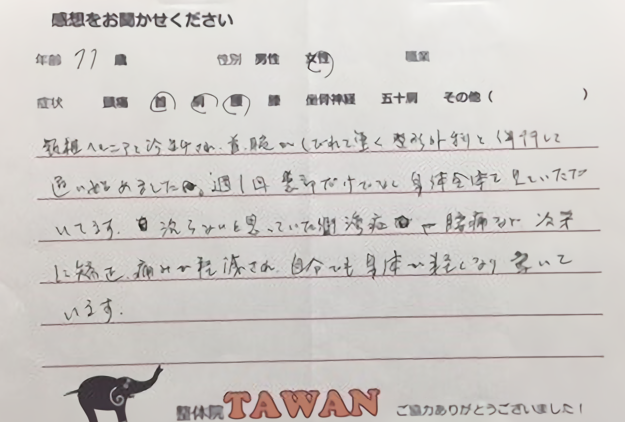 感想をお聞かせください
年齢 77 歳 性別 男性 女性 職業
症状 頭痛 首 肩 腰 膝 坐骨神経 五十肩 その他( )
頚椎ヘルニアと診断され、首、腕がしびれて凄く整形外科と併行して
通い始めました。週1回患部だけでなく身体全体を見ていただ
いてます。治らないと思っていた側湾症や腰痛なが次第
に矯正、痛みが軽減され、自分でも身体が軽くなり驚いて
います。
整体院 TAWAN ご協力ありがとうございました!